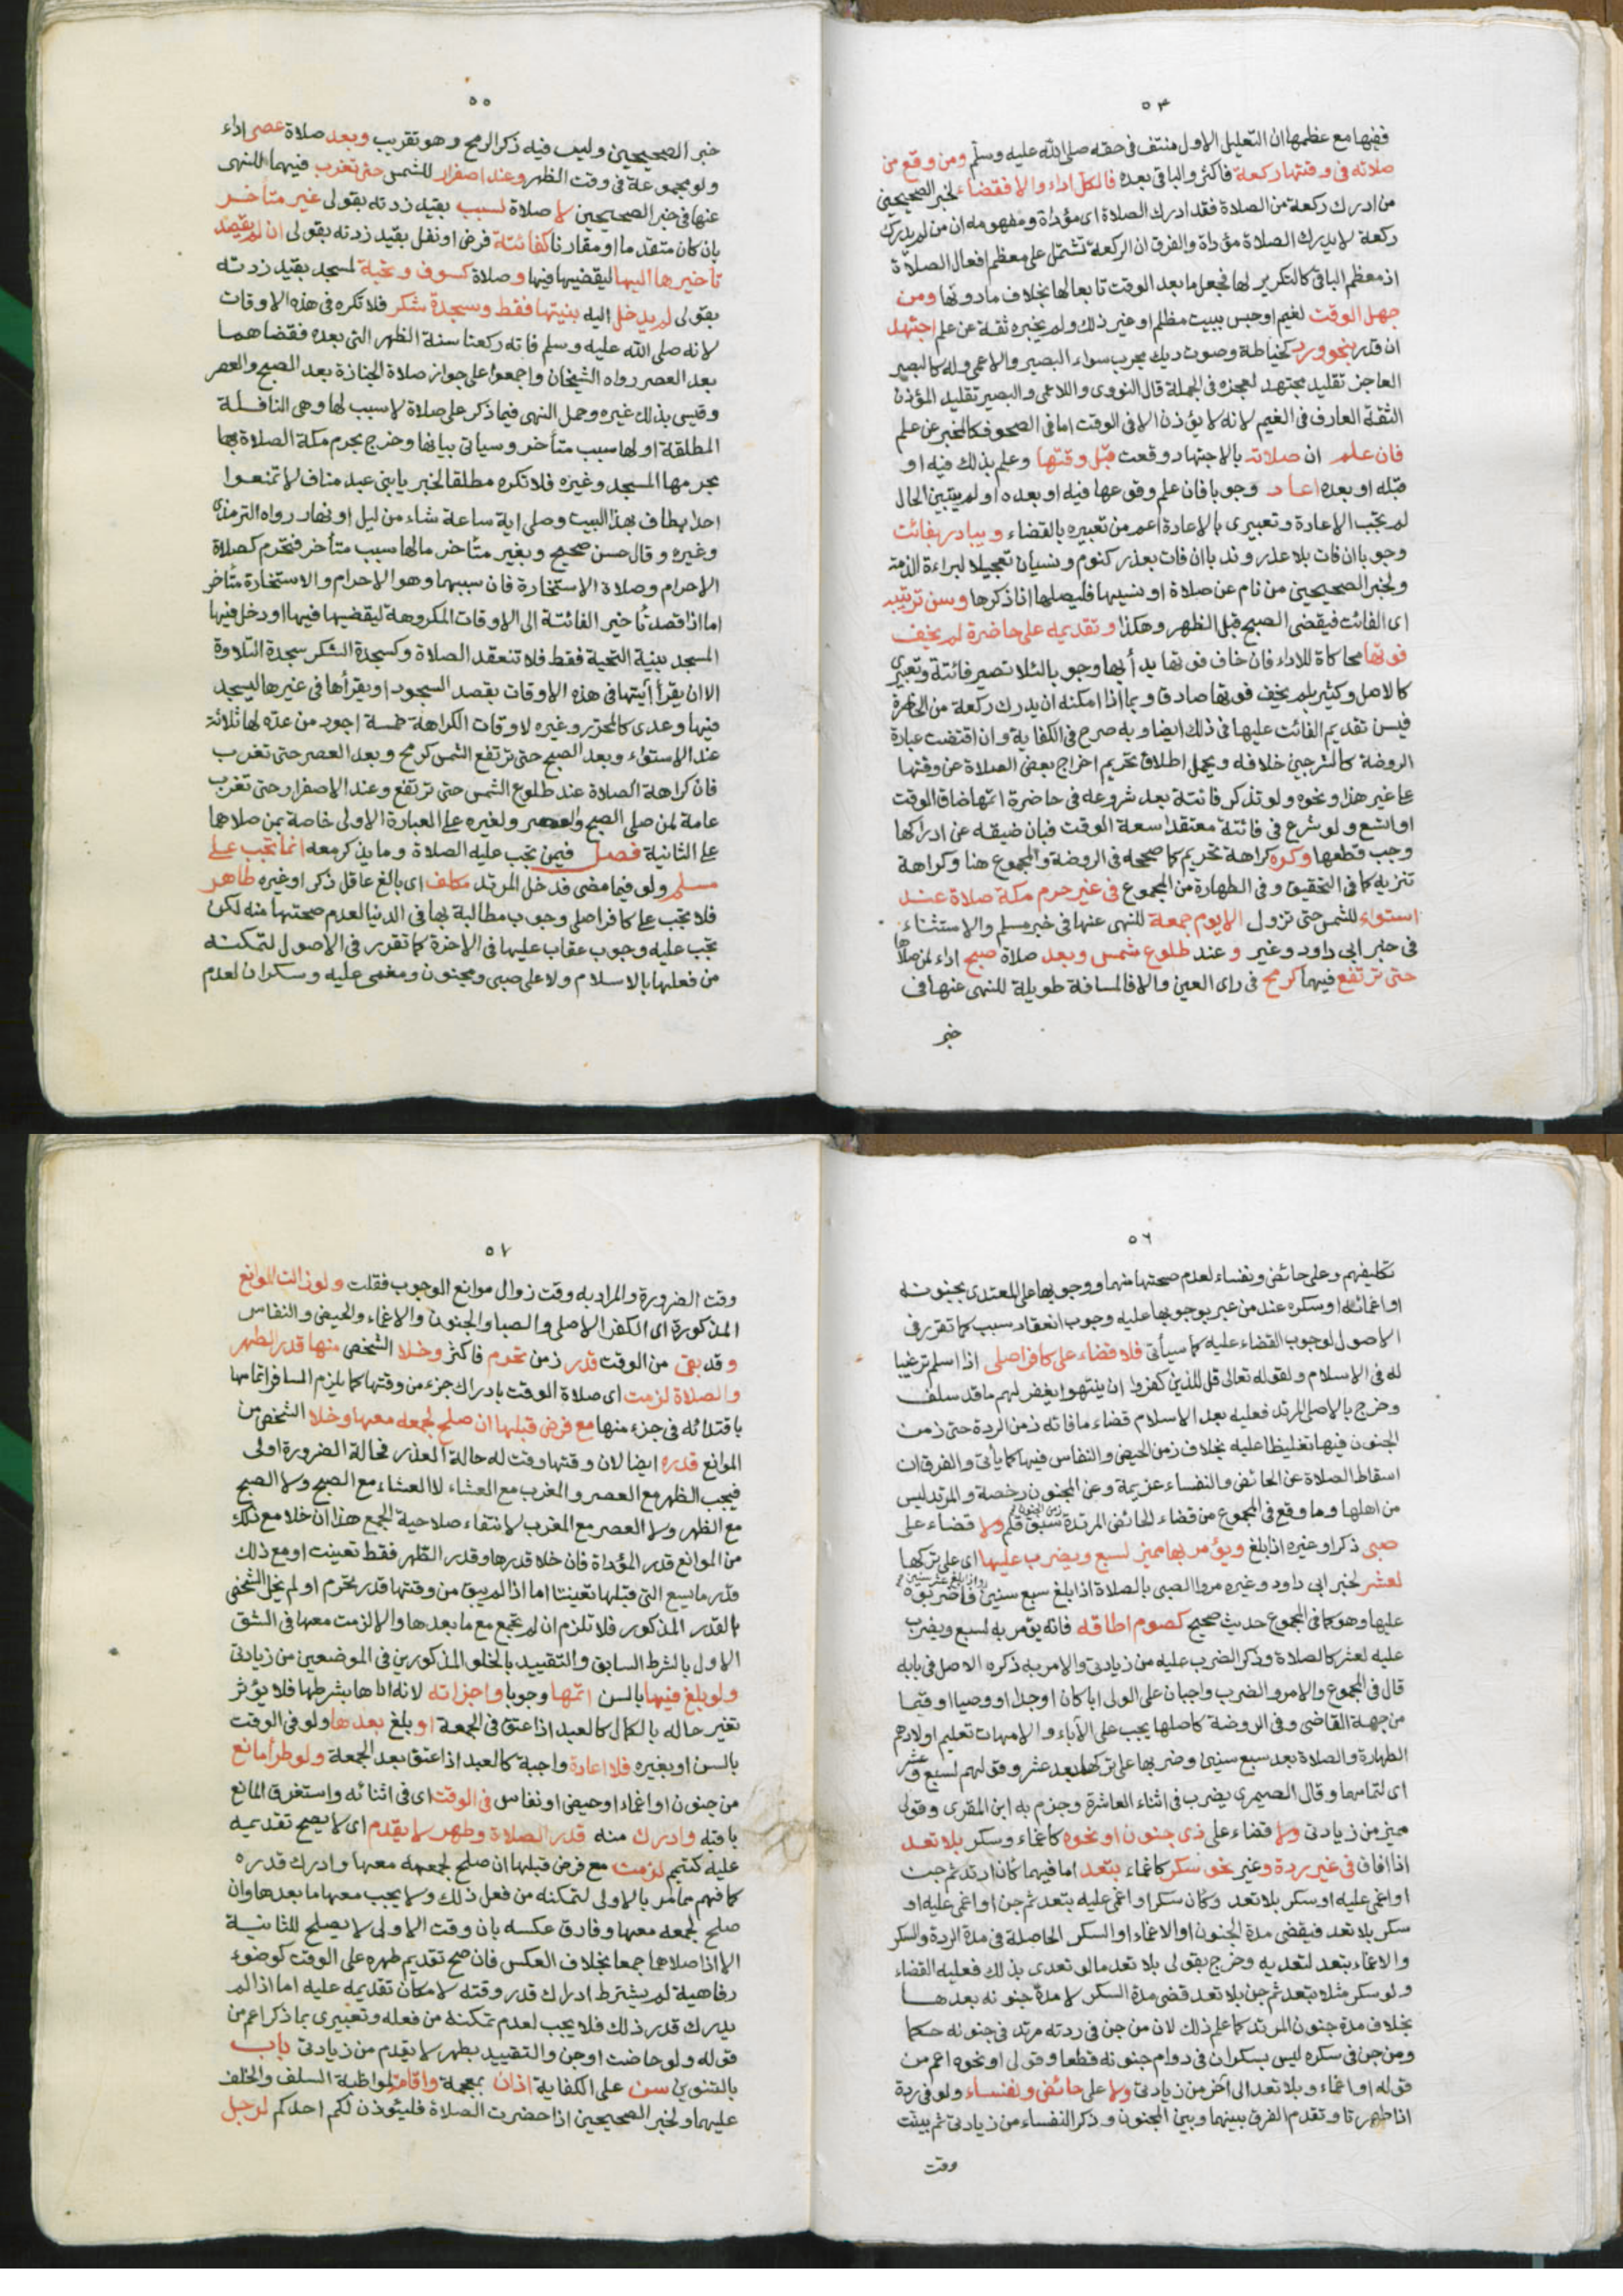 ٥٤
ففيها مع عظمها ان التعليل الاول منتف فى حقه صلى الله عليه وسلم ومن وقع من
صلاته فى وقتها ركعة فاكثر والباقى بعده فالكل اداء والا فقضاء لخبر الصحيحين
من ادرك ركعة من الصلاة فقد ادرك الصلاة اى مؤداة ومفهومه ان من لم يدرك
ركعة لا يدرك الصلاة مؤداة والفرق ان الركعة تشتمل على معظم افعال الصلاة
اذ معظم الباقى كالتكرير لها فجعل ما بعد الوقت تابعا لها بخلاف ما دونها ومن
جهل الوقت لغيم او حبس ببيت مظلم او غير ذلك ولم يخبره ثقة عن علم اجتهد
ان قدر بنحو ورد كخياطة وصوت ديك مجرب سواء البصير والاعمى وله كالبصير
العاجز تقليد مجتهد لعجزه فى الجملة قال النووى وللاعمى والبصير تقليد المؤذن
الثقة العارف فى الغيم لانه لا يؤذن الا فى الوقت اما فى الصحو فكالمخبر عن علم
فان علم ان صلاته بالاجتهاد وقعت قبل وقتها وعلم بذلك فيه او
قبله او بعده اعاد وجوبا فان علم وقوعها فيه او بعده او لم يتبين الحال
لم تجب الاعادة وتعبيرى بالاعادة اعم من تعبيره بالقضاء ويبادر بفائت
وجوبا ان فات بلا عذر وندبا ان فات بعذر كنوم ونسيان تعجيلا لبراءة الذمة
ولخبر الصحيحين من نام عن صلاة او نسيها فليصلها اذا ذكرها وسن ترتيبه
اى الفائت فيقضى الصبح قبل الظهر وهكذا وتقديمه على حاضرة لم يخف
فوتها محاكاة للاداء فان خاف فوتها بدأ بها وجوبا لئلا تصير فائتة وتعبيرى
كالاصل وكثير بلم يخف فوتها صادق بما اذا امكنه ان يدرك ركعة من الحاضرة
فيسن تقديم الفائت عليها فى ذلك ايضا وبه صرح فى الكفاية وان اقتضت عبارة
الروضة كالشرحين خلافه ويحمل اطلاق تحريم اخراج بعض الصلاة عن وقتها
على غير هذا ونحوه ولو تذكر فائتة بعد شروعه فى حاضرة اتمها ضاق الوقت
او اتسع ولو شرع فى فائتة معتقدا سعة الوقت فبان ضيقه عن ادراكها
وجب قطعها وكره كراهة تحريم كما صححه فى الروضة والمجموع هنا وكراهة
تنزيه كما فى التحقيق وفى الطهارة من المجموع فى غير حرم مكة صلاة عند
استواء للشمس حتى تزول الا يوم جمعة للنهى عنها فى خبر مسلم والاستثناء
فى خبر ابى داود وغيره و عند طلوع شمس وبعد صلاة صبح اداء لمن صلاها
حتى ترتفع فيهما كرمح فى راى العين والا فالمسافة طويلة للنهى عنها فى
خبر
٥٥
خبر الصحيحين وليس فيه ذكر الرمح وهو تقريب وبعد صلاة عصر اداء
ولو مجموعة فى وقت الظهر وعند اصفرار للشمس حتى تغرب فيهما للنهى
عنها فى خبر الصحيحين لا صلاة لسبب بقيد زدته بقولى غير متاخر
بان كان متقدما او مقارنا كفائتة فرض او نفل بقيد زدته بقولى ان لم يقصد
تاخيرها اليها ليقضيها فيها وصلاة كسوف وتحية لمسجد بقيد زدته
بقولى لم يدخل اليه بنيتها فقط وسجدة شكر فلا تكره فى هذه الاوقات
لانه صلى الله عليه وسلم فاته ركعتا سنة الظهر التى بعده فقضاهما
بعد العصر رواه الشيخان واجمعوا على جواز صلاة الجنازة بعد الصبح والعصر
وقيس بذلك غيره وحمل النهى فيما ذكر على صلاة لا سبب لها وهى النافلة
المطلقة او لها سبب متأخر وسياتى بيانها وخرج بحرم مكة الصلاة بها
بحرمها المسجد وغيره فلا تكره مطلقا لخبر يا بنى عبد مناف لا تمنعوا
احدا طاف بهذا البيت وصلى اية ساعة شاء من ليل او نهار رواه الترمذى
وغيره وقال حسن صحيح وبغير متأخر ما لها سبب متأخر فتحرم كصلاة
الاحرام وصلاة الاستخارة فان سببهما وهو الاحرام والاستخارة متأخر
اما اذا قصد تأخير الفائتة الى الاوقات المكروهة ليقضيها فيها او دخل فيها
المسجد بنية التحية فقط فلا تنعقد الصلاة وكسجدة الشكر سجدة التلاوة
الا ان يقرأ أيتها فى هذه الاوقات بقصد السجود او يقرأها فى غيرها ليسجد
فيها وعدى كالمحرر وغيره لاوقات الكراهة خمسة اجود من عده لها ثلاثة
عند الاستواء وبعد الصبح حتى ترتفع الشمس كرمح وبعد العصر حتى تغرب
فان كراهة الصلاة عند طلوع الشمس حتى ترتفع وعند الاصفرار حتى تغرب
عامة لمن صلى الصبح والعصر ولغيره على العبارة الاولى خاصة بمن صلاهما
على الثانية فصل فيمن تجب عليه الصلاة وما يذكر معه انما تجب على
مسلم ولو فيما مضى فدخل المرتد مكلف اى بالغ عاقل ذكر او غيره طاهر
فلا تجب على كافر اصلى وجوب مطالبة بها فى الدنيا لعدم صحتها منه لكن
تجب عليه وجوب عقاب عليها فى الاخرة كما تقرر فى الاصول لتمكنه
من فعلها بالاسلام ولا على صبى ومجنون ومغمى عليه وسكران لعدم
٥٦
تكليفهم وعلى حائض ونفساء لعدم صحتها منهما ووجوبها على المعتدى بجنونه
او اغمائه او سكره عند من عبر بوجوبها عليه وجوب انعقاد سبب كما تقرر فى
الاصول لوجوب القضاء عليه كما سيأتى فلا قضاء على كافر اصلى اذا اسلم ترغيبا
له فى الاسلام ولقوله تعالى قل للذين كفروا ان ينتهوا يغفر لهم ما قد سلف
وخرج بالاصلى المرتد فعليه بعد الاسلام قضاء ما فاته زمن الردة حتى زمن
الجنون فيها تغليظا عليه بخلاف زمن الحيض والنفاس فيها كما يأتى والفرق ان
اسقاط الصلاة عن الحائض والنفساء عزيمة وعن المجنون رخصة والمرتد ليس
من اهلها وما وقع فى المجموع من قضاء الحائض المرتدة زمن الجنون سبق قلم ولا قضاء على
صبى ذكر او غيره اذا بلغ ويؤمر بها مميز لسبع ويضرب عليها اى على تركها
لعشر لخبر ابى داود وغيره مروا الصبى بالصلاة اذا بلغ سبع سنين واذا بلغ عشر سنين فاضربوه
عليها وهو كما فى المجموع حديث صحيح كصوم اطاقه فانه يؤمر به لسبع ويضرب
عليه لعشر كالصلاة وذكر الضرب عليه من زيادتى والامر به ذكره الاصل فى بابه
قال فى المجموع والامر والضرب واجبان على الولى ابا كان او جدا او وصيا او قيما
من جهة القاضى وفى الروضة كاصلها يجب على الآباء والامهات تعليم اولادهم
الطهارة والصلاة بعد سبع سنين وضربها على تركها بعد عشر وقولهم لسبع وعشر
اى لتمامها وقال الصيمرى يضرب فى اثناء العاشرة وجزم به ابن المقرى وقولى
مميز من زيادتى ولا قضاء على ذى جنون او نحوه كاغماء وسكر بلا تعد
اذا افاق فى غير ردة وغير نحو سكر كاغماء بتعد اما فيهما كان ارتد ثم جن
او اغمى عليه او سكر بلا تعد وكان سكر او اغمى عليه بتعد ثم جن او اغمى عليه او
سكر بلا تعد فيقضى مدة الجنون او الاغماء او السكر الحاصلة فى مدة الردة والسكر
والاغماء بتعد لتعديه وخرج بقولى بلا تعد ما لو تعدى بذلك فعليه القضاء
ولو سكر مثلا بتعد ثم جن بلا تعد قضى مدة السكر لا مدة جنونه بعدها
بخلاف مدة جنون المرتد كما علم ذلك لان من جن فى ردته مرتد فى جنونه حكما
ومن جن فى سكره ليس بسكران فى دوام جنونه قطعا وقولى او نحوه اعم من
قوله او اغماء وبلا تعد الى آخر من زيادتى ولا على حائض ونفساء ولو فى ردة
اذا طهرتا وتقدم الفرق بينهما وبين المجنون وذكر النفساء من زيادتى ثم بينت
وقت
٥٧
وقت الضرورة والمراد به وقت زوال موانع الوجوب فقلت ولو زالت الموانع
المذكورة اى الكفر الاصلى والصبا والجنون والاغماء والحيض والنفاس
وقد بقى من الوقت قدر زمن تحرم فاكثر وخلا الشخص منها قدر الطهر
والصلاة لزمت اى صلاة الوقت بادراك جزء من وقتها كما يلزم المسافر اتمامها
باقتدائه فى جزء منها مع فرض قبلها ان صلح لجمعه معها وخلا الشخص من
الموانع قدره ايضا لان وقتها وقت له حالة العذر فحالة الضرورة اولى
فيجب الظهر مع العصر والمغرب مع العشاء لا العشاء مع الصبح ولا الصبح
مع الظهر ولا العصر مع المغرب لانتفاء صلاحية الجمع هذا ان خلا مع ذلك
من الموانع قدر المؤداة فان خلا قدرها وقدر الظهر فقط تعينت او مع ذلك
قدر ما يسع التى قبلها تعينتا اما اذا لم يبق من وقتها قدر تحرم او لم يخل الشخص
القدر المذكور فلا تلزم ان لم تجمع مع ما بعدها والا لزمت معها فى الشق
الاول بالشرط السابق والتقييد بالخلو المذكورين فى الموضعين من زيادتى
ولو بلغ فيها بالسن اتمها وجوبا واجزاته لانه اداها بشرطها فلا يؤثر
تغير حاله بالكمال كالعبد اذا عتق فى الجمعة او بلغ بعدها ولو فى الوقت
بالسن او بغيره فلا اعادة واجبة كالعبد اذا عتق بعد الجمعة ولو طرأ مانع
من جنون او اغماء او حيض او نفاس فى الوقت اى فى اثنائه واستغرق المانع
باقيه وادرك منه قدر الصلاة وطهر لا يقدم اى لا يصح تقديمه
عليه كتيمم لزمت مع فرض قبلها ان صلح لجمعه معها وادرك قدره
كما فهم مما مر بالاولى لتمكنه من فعل ذلك ولا يجب معها ما بعدها وان
صلح لجمعه معها وفارق عكسه بان وقت الاولى لا يصلح للثانية
الا اذا صلاهما جمعا بخلاف العكس فان صح تقديم طهره على الوقت كوضوء
رفاهية لم يشترط ادراك قدر وقته لامكان تقديمه عليه اما اذا لم
يدرك قدر ذلك فلا يجب لعدم تمكنه من فعله وتعبيرى بما ذكر اعم من
قوله ولو حاضت او جن والتقييد بطهر لا يقدم من زيادتى باب
بالتنوين سن على الكفاية اذان بمعجمة واقامة لمواظبة السلف والخلف
عليهما ولخبر الصحيحين اذا حضرت الصلاة فليؤذن لكم احدكم لرجل